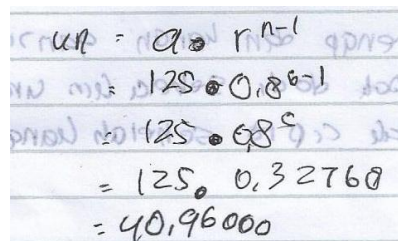 un = a • r^n-1
= 125 • 0,8^6-1
= 125 • 0,8^5
= 125 • 0,32768
= 40,96000